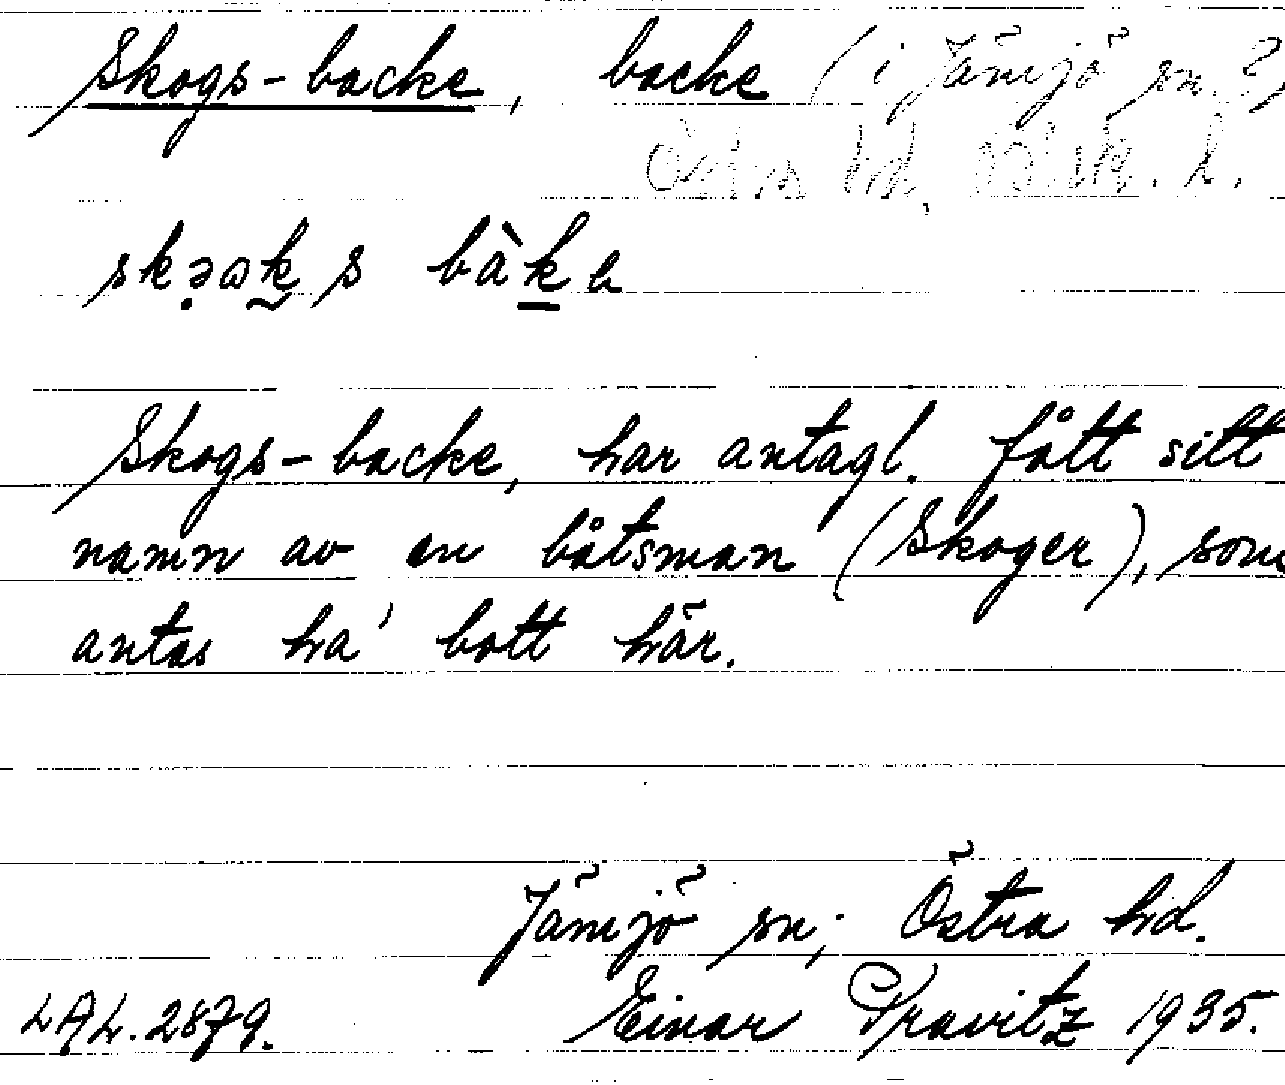 Skogs-backe, backe (i Jämjö sn. ?,
Östra hd, Blek. l.
skəωks bàka
Skogs-backe, har antagl. fått sitt
namn av en båtsman (Skoger), som
antas ha' bott här.
Jämjö sn; Östra hd.
LAL. 2879. Einar Kravitz 1935.